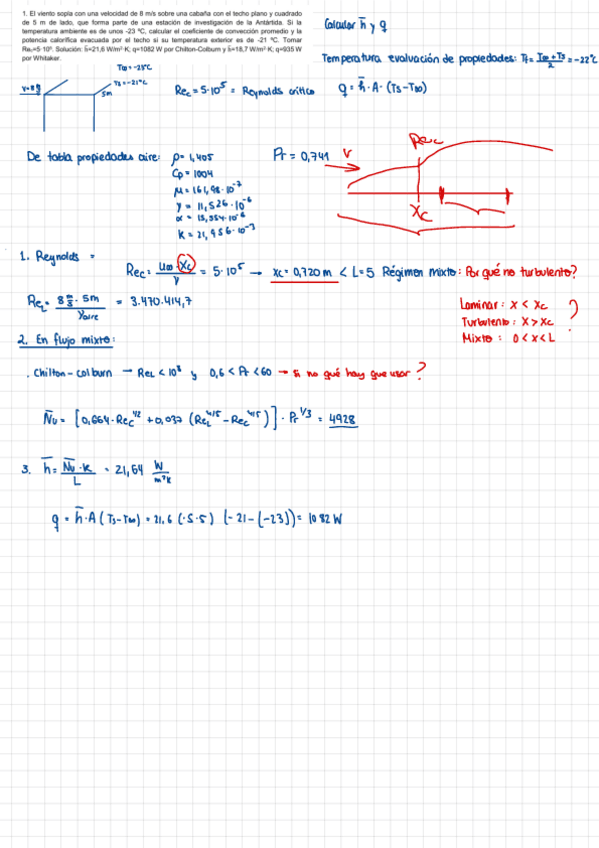 1. El viento sopla con una velocidad de 8 m/s sobre una cabaña con el techo plano y cuadrado
de 5 m de lado, que forma parte de una estación de investigación de la Antártida. Si la
temperatura ambiente es de unos -23 ºC, calcular el coeficiente de convección promedio y la
potencia calorífica evacuada por el techo si su temperatura exterior es de -21 ºC. Tomar
Reₓ,c=5·10⁵. Solución: h̅=21,6 W/m²·K; q=1082 W por Chilton-Colburn y h̅=18,7 W/m²·K; q=935 W
por Whitaker.
Calcular h̅ y q
Temperatura evaluación de propiedades: Tf = (T∞ + Ts)/2 = -22ºC
T∞ = -23ºC
Ts = -21ºC
V=8
5m
Rec = 5·10⁵ = Reynolds crítico
q = h̅ · A · (Ts-T∞)
De tabla propiedades aire: ρ = 1,405
Pr = 0,741
Cp = 1004
μ = 161,98·10⁻⁷
γ = 11,526·10⁻⁶
α = 15,554·10⁻⁶
K = 21,956·10⁻³
V
Rec
Xc
1. Reynolds =
Rec = (u∞ · Xc)/γ = 5·10⁵ → xc = 0,720 m < L=5 Régimen mixto: Por qué no turbulento?
ReL = (8 m/s · 5m)/γaire = 3.470.414,7
Laminar: x < xc
Turbulento: X > Xc
Mixto: 0 < x < L
?
2. En flujo mixto:
. Chilton-colburn → ReL < 10⁸ y 0,6 < Pr < 60 → Si no qué hay que usar?
N̅u = [0,664·Rec^1/2 + 0,037 (ReL^4/5 - Rec^4/5)] · Pr^1/3 = 4928
3. h̅ = (N̅u · K)/L = 21,64 W/m²K
q = h̅·A (Ts-T∞) = 21,6 (·5·5) (-21-(-23)) = 1082 W